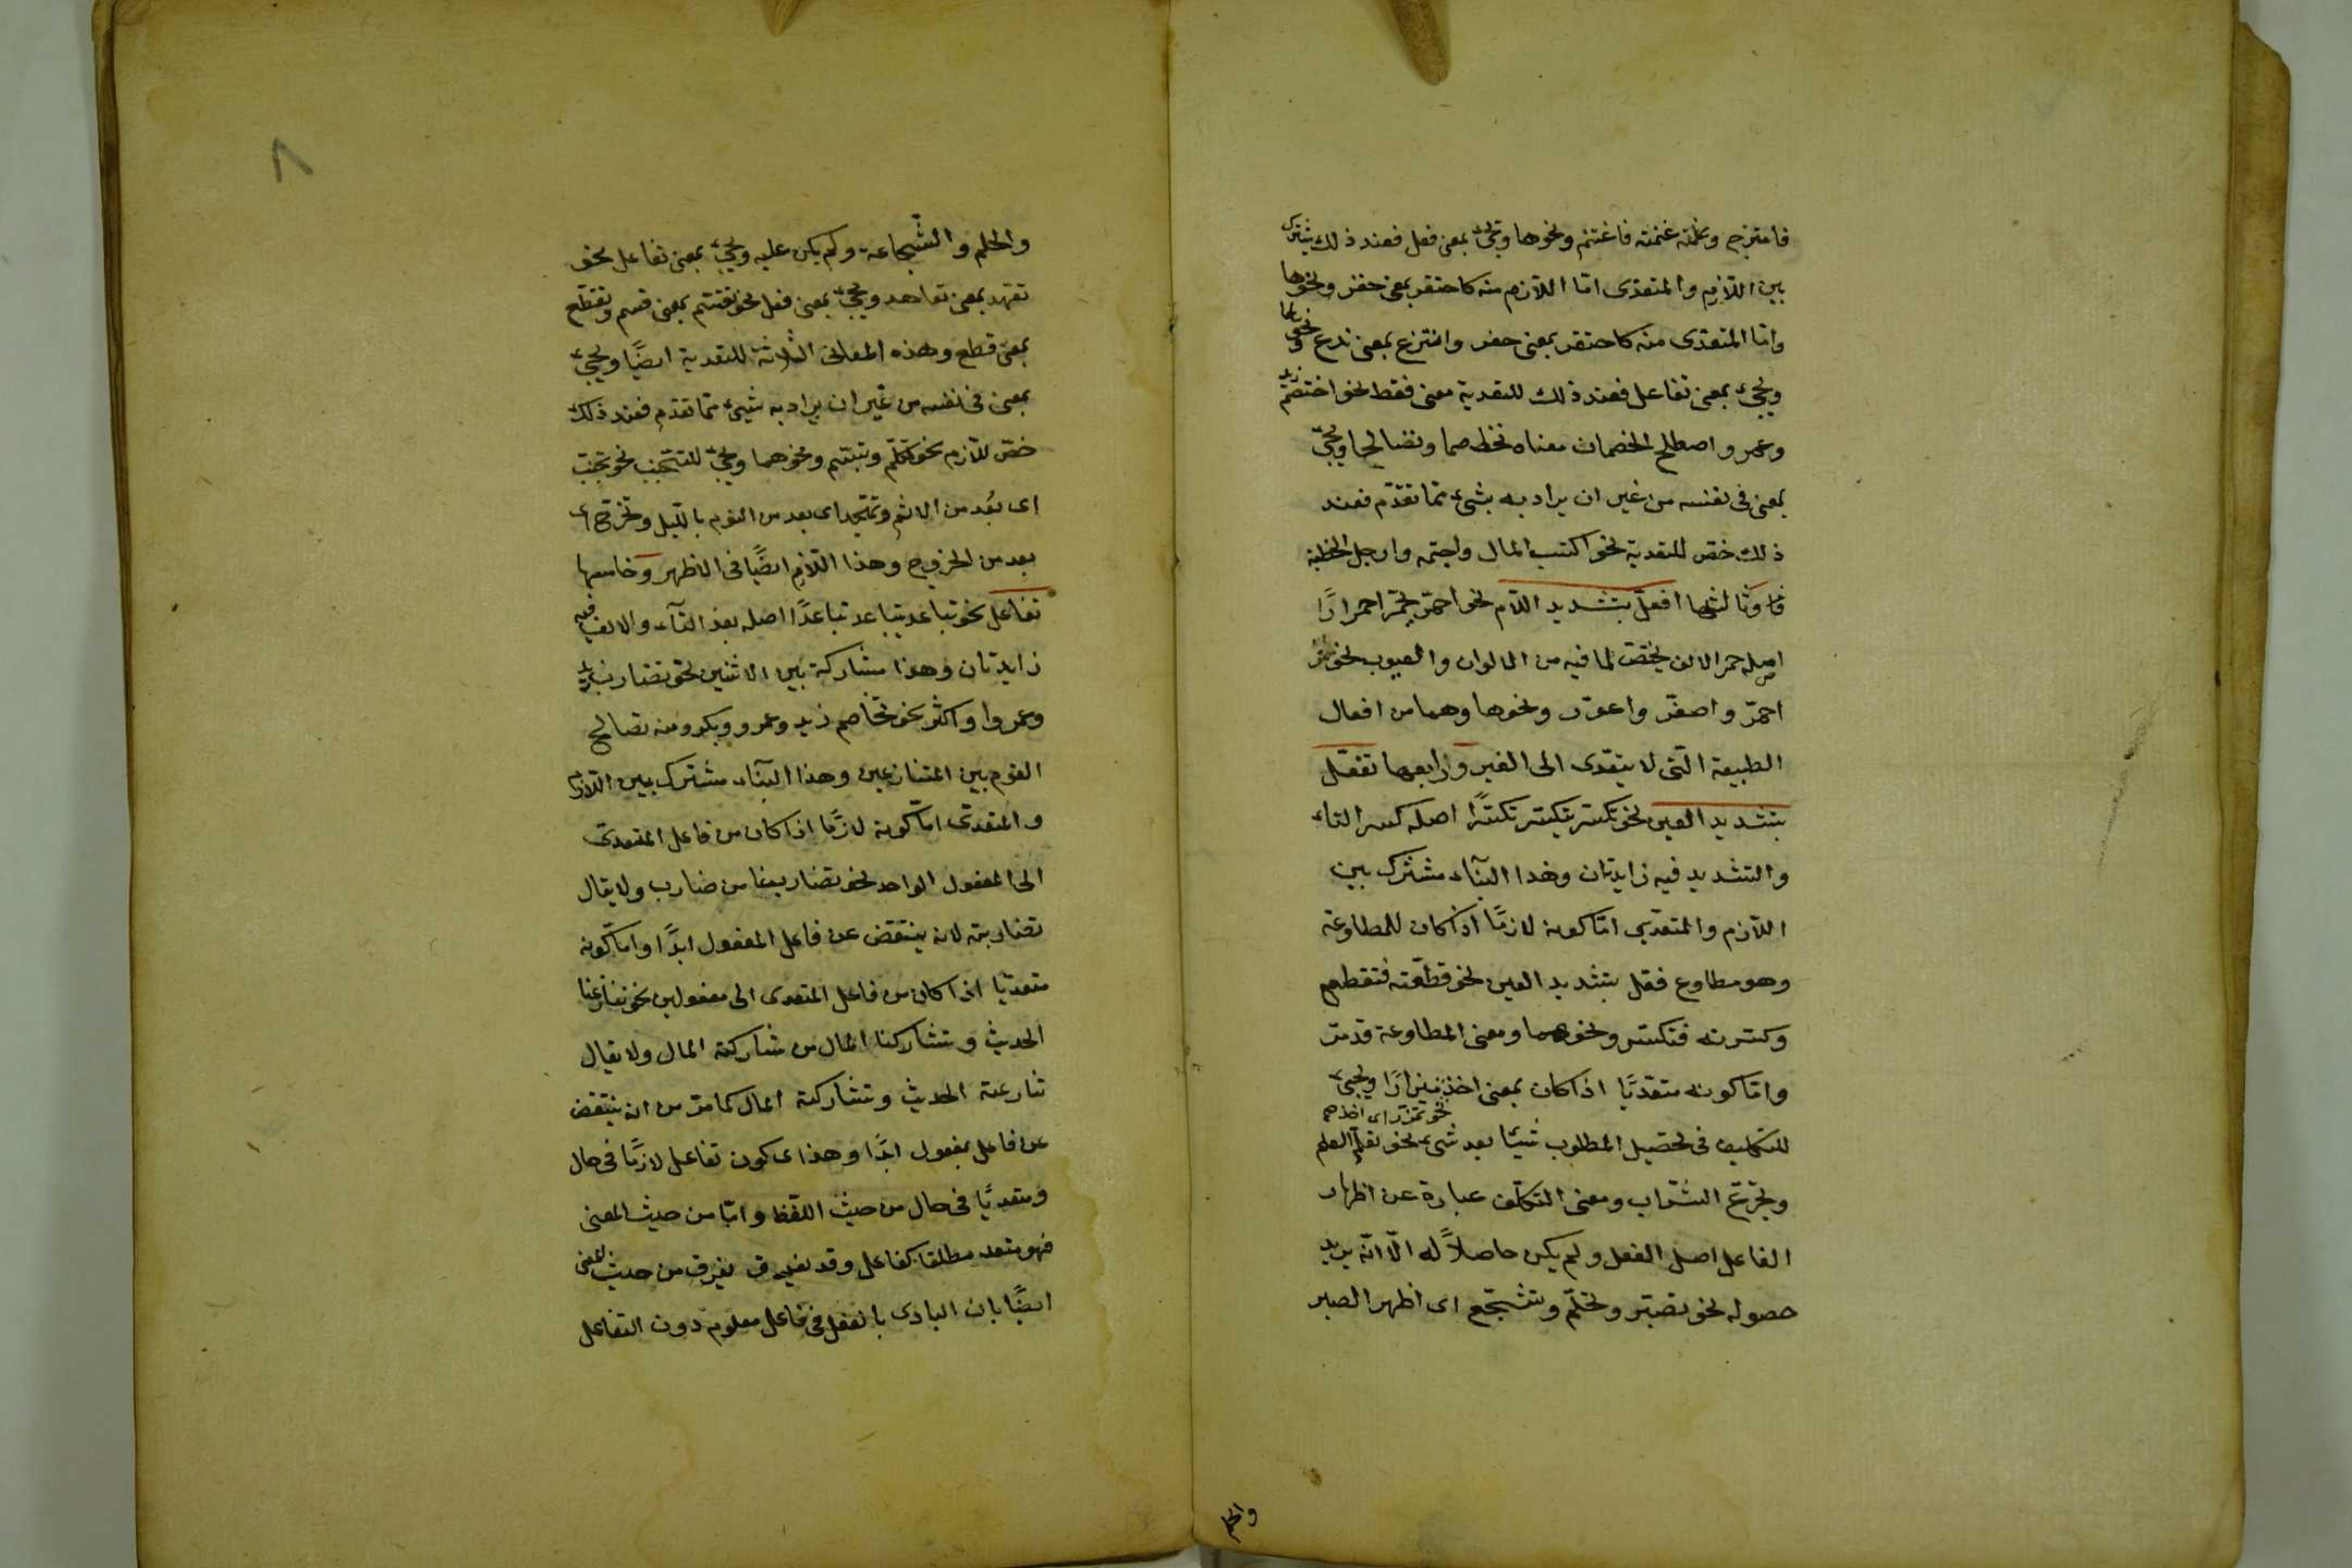 فامتزج وغمته غنمته فاغتنم ونحوهما ويجئ بمعنى فعل فعند ذلك يشترك
بين اللازم والمتعدى امّا اللازم منه كاحتقر بمعنى حقر ونحوها
وامّا المتعدى منه كاحتقر بمعنى حفر وانتزع بمعنى نزع ونحوها
ويجئ بمعنى تفاعل فعند ذلك للتعدية معنى فقط نحو اختصم زيد
وعمرو واصطلح الخصمان معناه تخاصما وتصالحا ويجئ
بمعنى فى نفسه من غير ان يراد به بشئ ممّا تقدّم فعند
ذلك خصّ للتعدية نحو اكتسب المال واجتمه وارجل الخطبة
وثالثها افعلّ بتشديد اللّام نحو احمرّ يحمرّ احمرارًا
اصله حمر الالف يختصّ لما فيه من الالوان والعيوب نحو
احمرّ واصفرّ واعورّ ونحوها وهما من افعال
الطبيعة الّتى لا يتعّدى الى الغير ورابعها تفعّل
بتشديد العين نحو تكسّر يتكسّر تكسّرًا اصله كسر التاء
والتشديد فيه زايدتان وهذا البنآء مشترك بين
اللّازم والمتعدّى امّا كونه لازمًا اذا كان للمطاوعة
وهو مطاوع فعّل بتشديد العين نحو قطّعته فتقطّع
وكسّرته فتكسّر ونحوهما ومعنى المطاوعة قد مرّ
وامّا كونه متعّديًا اذا كان بمعنى اخذ ويجئ
نحو تمزّز اى اخذ
للتكليف فى تحصيل المطلوب شيئا بعد شئ نحو تعلّم العلم
وتجرّع الشّراب ومعنى التكلّف عبارة عن اظهار
الفاعل اصل الفعل ولم يكن حاصلاً له الّا انّه يريد
حصوله نحو تصبّر وتحلّم وتشجّع اى اظهر الصبر
والحلم
٨
والحلم والشّجاعة ولم يكن عليه ويجئ بمعنى تفاعل نحو
تعهّد بمعنى تعاهد ويجئ بمعنى فعل نحو تقسّم بمعنى قسم وتقطّع
بمعنى قطع وهذه المعانى الثلاثة للتعدية ايضًا ويجئ
بمعنى فى نفسه من غير ان يراد به شئ ممّا تقدّم فعند ذلك
خصّ للّازم نحو تكلّم وتبسّم ونحوهما ويجئ للتّجنّب نحو تجنّب
اى بُعد من الاثم وتهجّد اى بعد من النوم بالّليل وتخرّج اى
بعد من الخروج وهذا اللّازم ايضًا فى الاظهر وخامسها
تفاعل نحو تباعد يتباعد تباعدًا اصله بعد التآء والالف فيه
زايدتان وهذا مشاركة بين الاثنين نحو تضارب زيد
وعمرو او اكثر نحو تخاصم زيد وعمرو وبكر ومنه تصالح
القوم بين المتنازعين وهذا البنآء مشترك بين اللّازم
والمتعدّى امّا كونه لازمًا اذا كان من فاعل المتعدى
الى المفعول الواحد نحو تضاربنا من ضارب ولا يقال
تضاربته لانه ينتقض عن فاعل المفعول ابدًا وامّا كونه
متعديًا اذا كان من فاعل المتعدى الى مفعولين نحو تنازعنا
الحديث وتشاركنا المال من شاركته المال ولا يقال
تنارعته الحديث وتشاركته المال كما مرّ من انه ينتقض
عن فاعل بمفعول ابدًا وهذا اى كون تفاعل لازمًا فى حال
ومتعديًا فى حال من حيث اللّفظ وامّا من حيث المعنى
فهو متعد مطلقا كفاعل وقد يفرق من حيث المعنى
ايضًا بان البادى بالفعل فى فاعل معلوم دون التفاعل